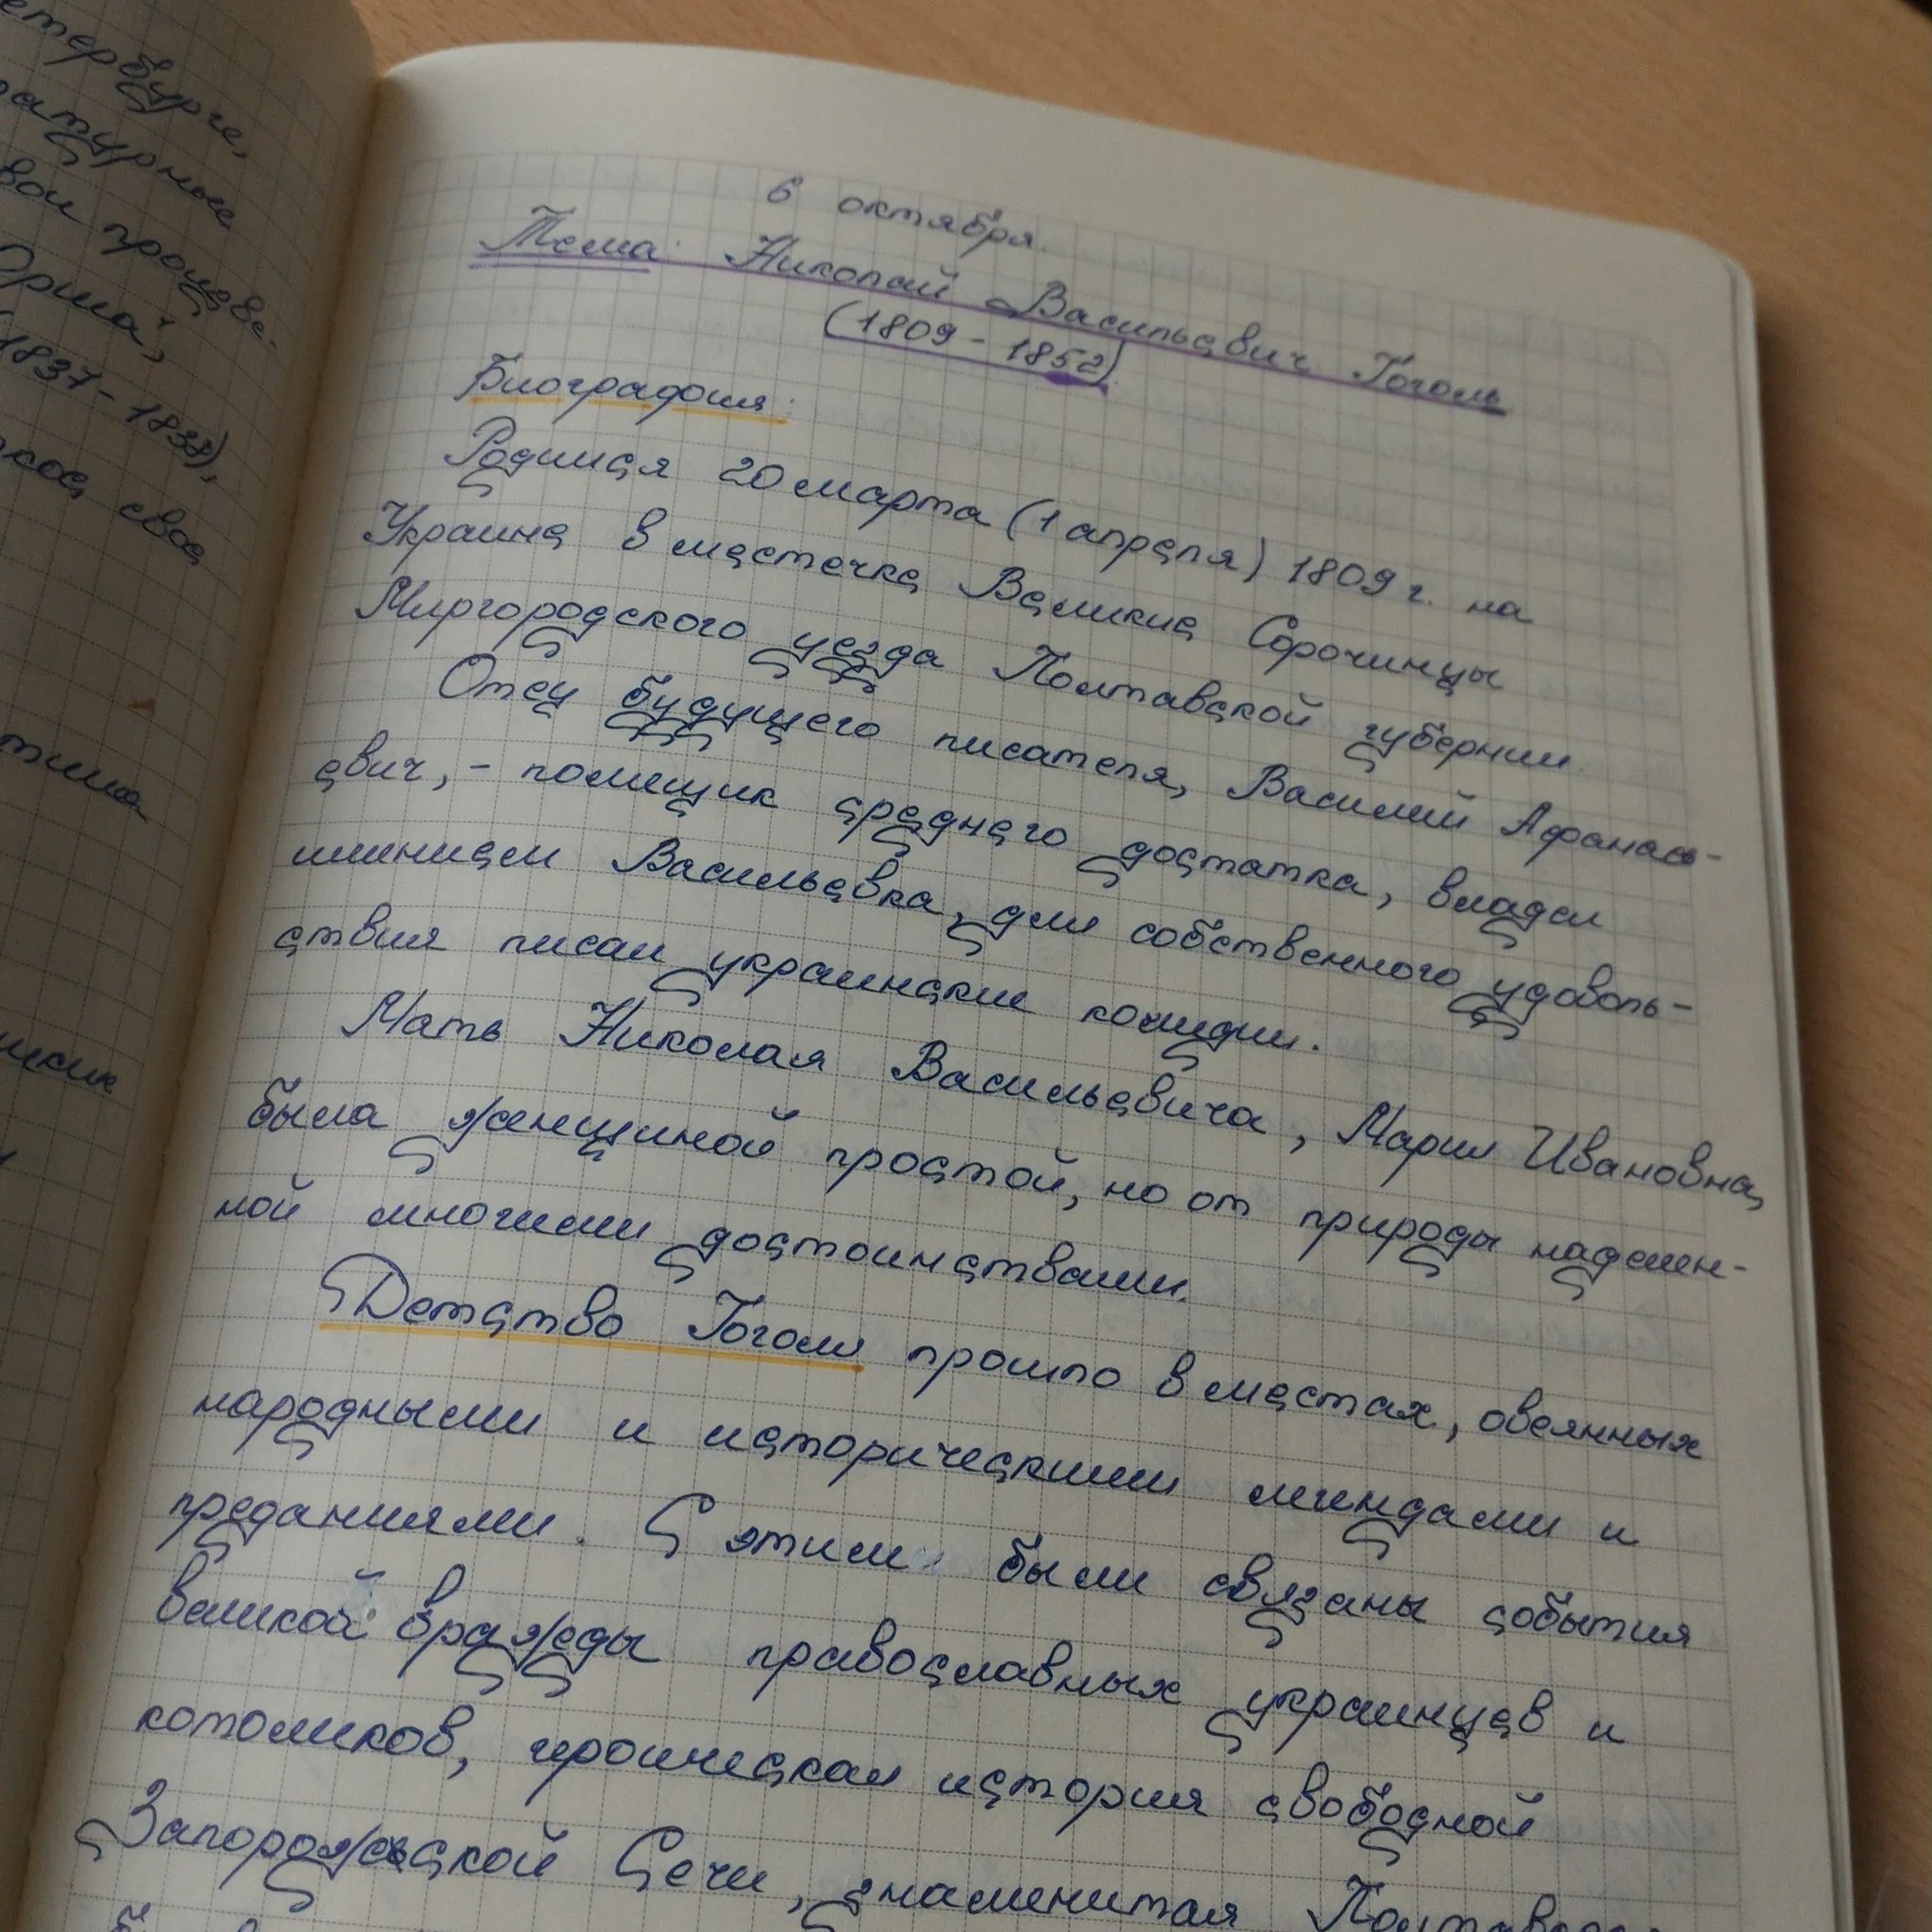 тербурге,
атурные
вои произве-
Орша",
1837-1838),
свое
6 октября.
Тема: Николай Васильевич Гоголь
(1809 - 1852).
Биография:
Родился 20 марта (1 апреля) 1809 г. на
Украине в местечке Великие Сорочинцы
Миргородского уезда Полтавской губернии.
Отец будущего писателя, Василий Афанась-
евич, - помещик среднего достатка, владел
имением Васильевка, для собственного удоволь-
ствия писал украинские комедии.
Мать Николая Васильевича, Мария Ивановна,
была женщиной простой, но от природы наделен-
ной многими достоинствами.
Детство Гоголя прошло в местах, овеянных
народными и историческими легендами и
преданиями. С этим были связаны события
великой вражды православных украинцев и
котоликов, героическая история свободной
Запорожской Сечи, знаменитая